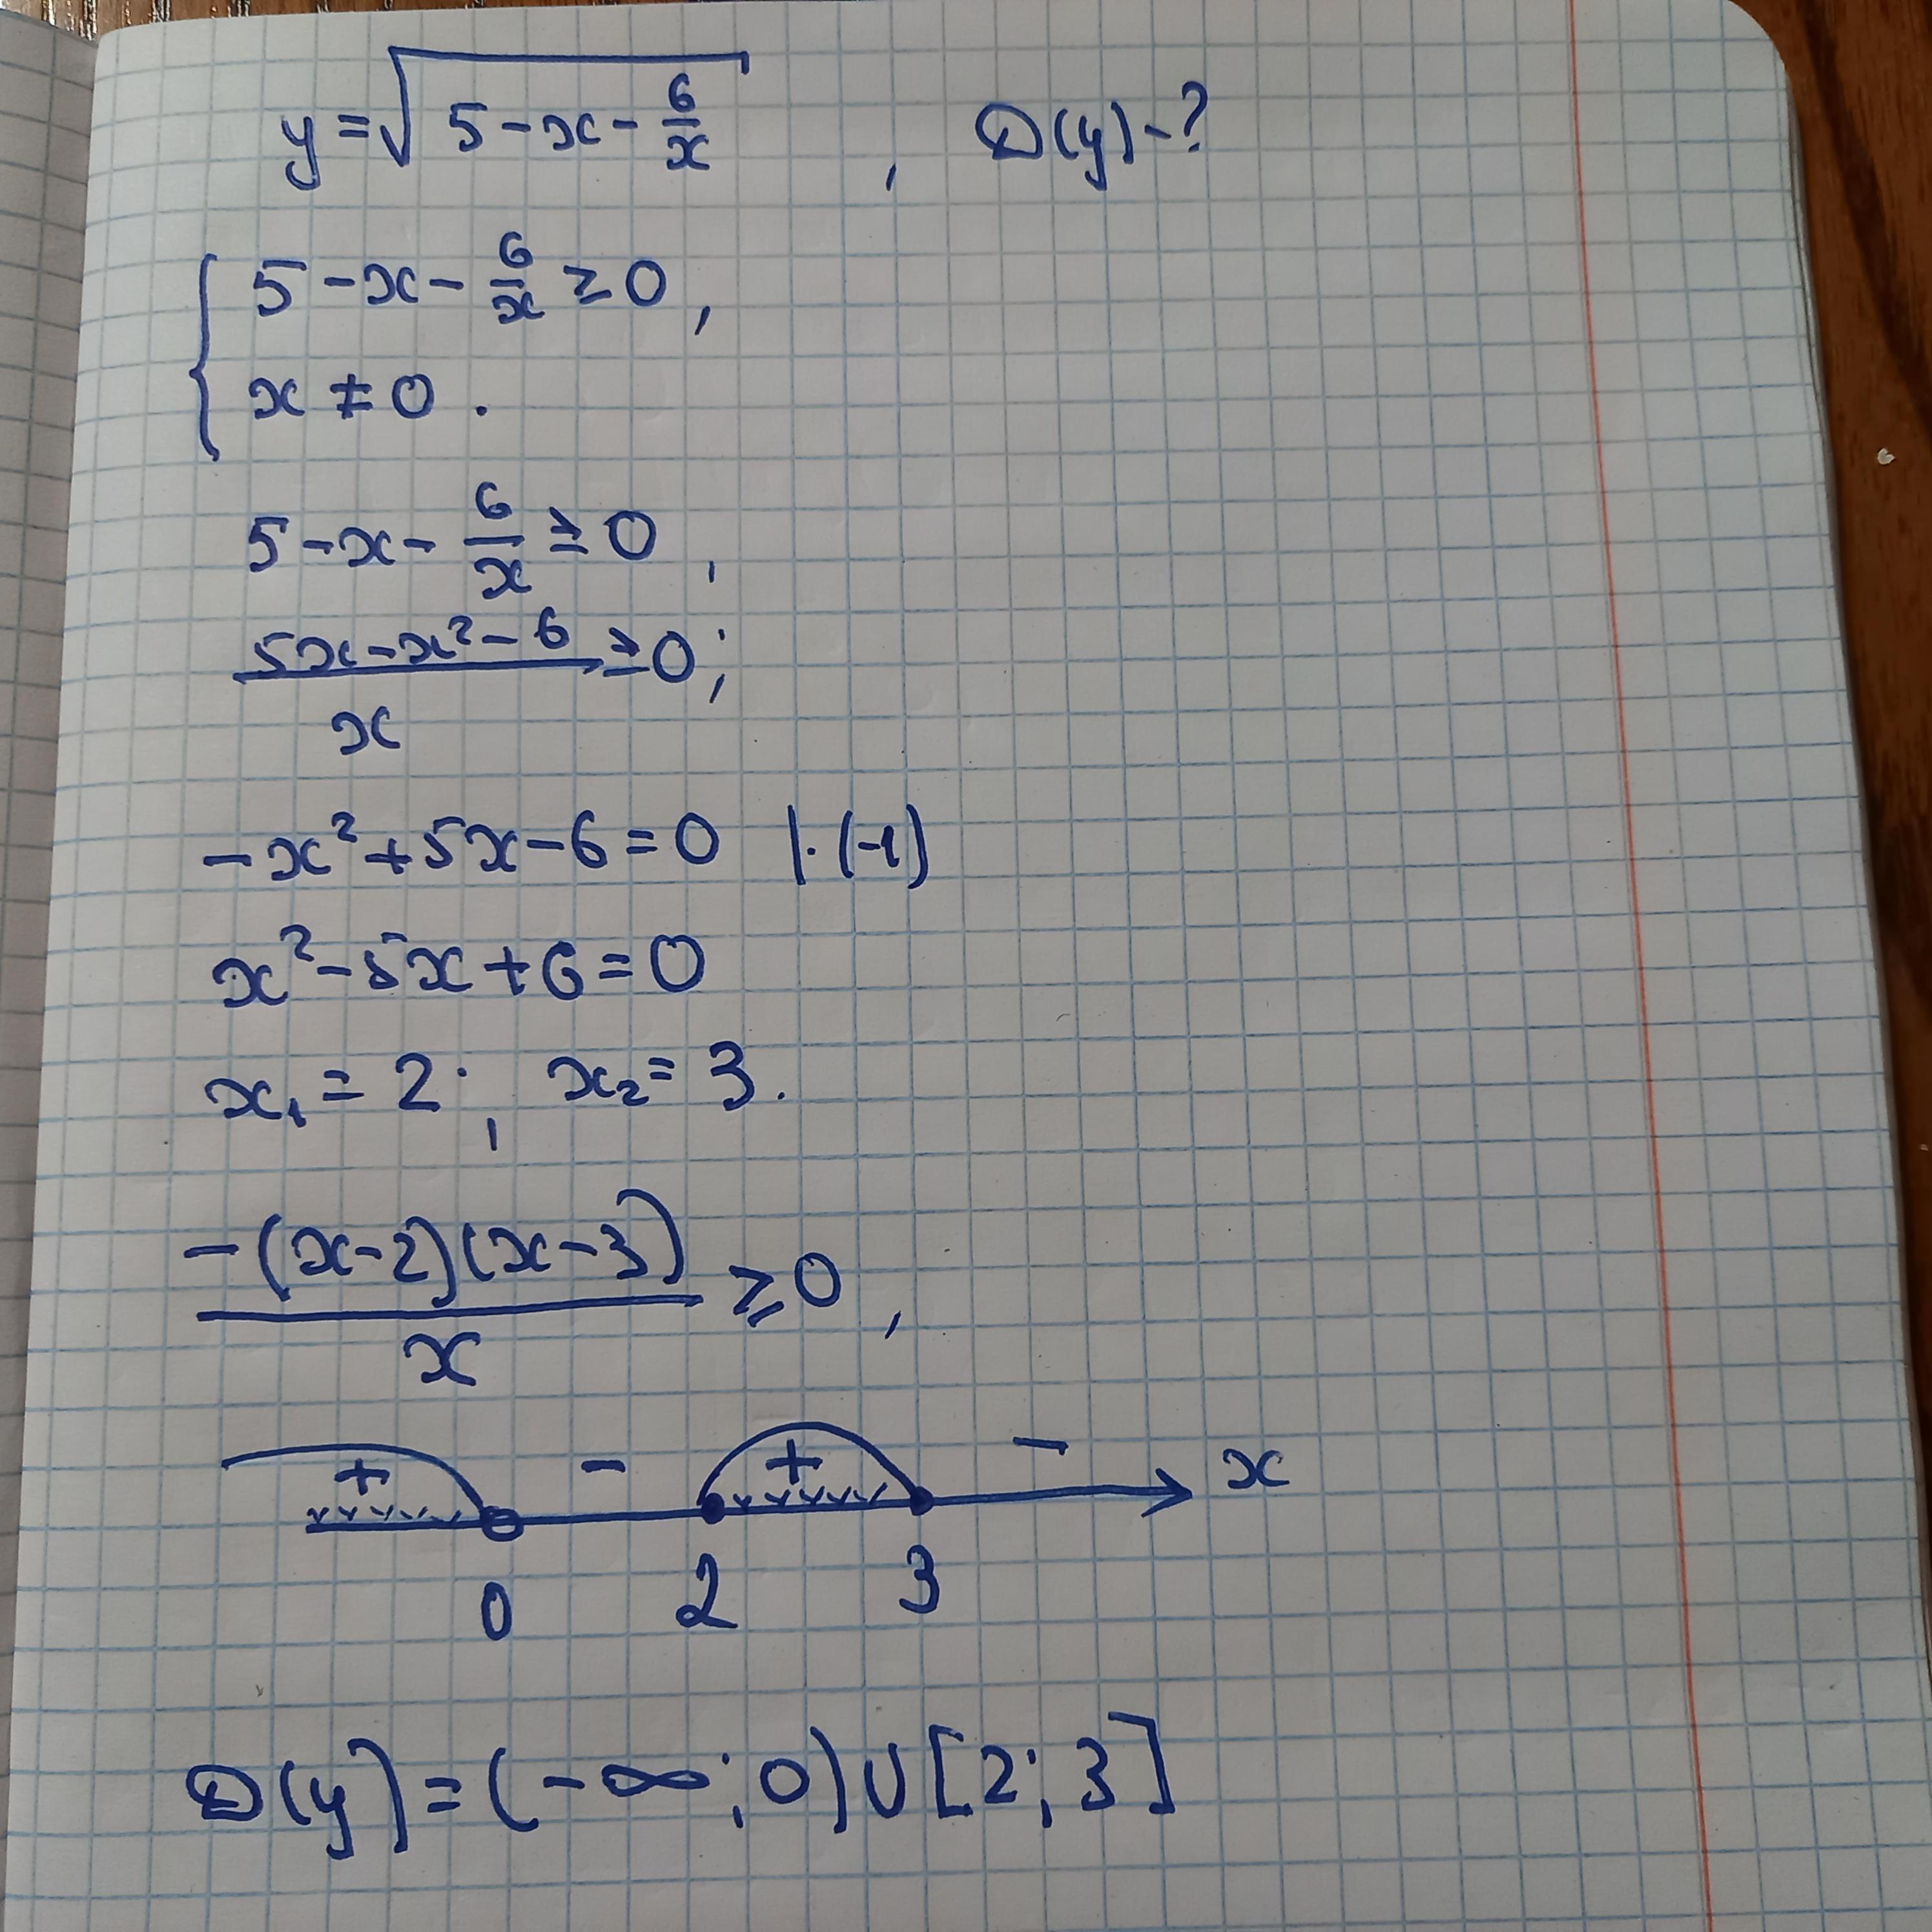 y = √(5 - x - 6/x) , D(y) - ?
{ 5 - x - 6/x ≥ 0,
x ≠ 0 .
5 - x - 6/x ≥ 0 ,
(5x - x² - 6)/x ≥ 0;
-x² + 5x - 6 = 0 | · (-1)
x² - 5x + 6 = 0
x₁ = 2 ; x₂ = 3.
(-(x-2)(x-3))/x ≥ 0 ,
+ - + - x
0 2 3
D(y) = (-∞; 0) ∪ [2; 3]